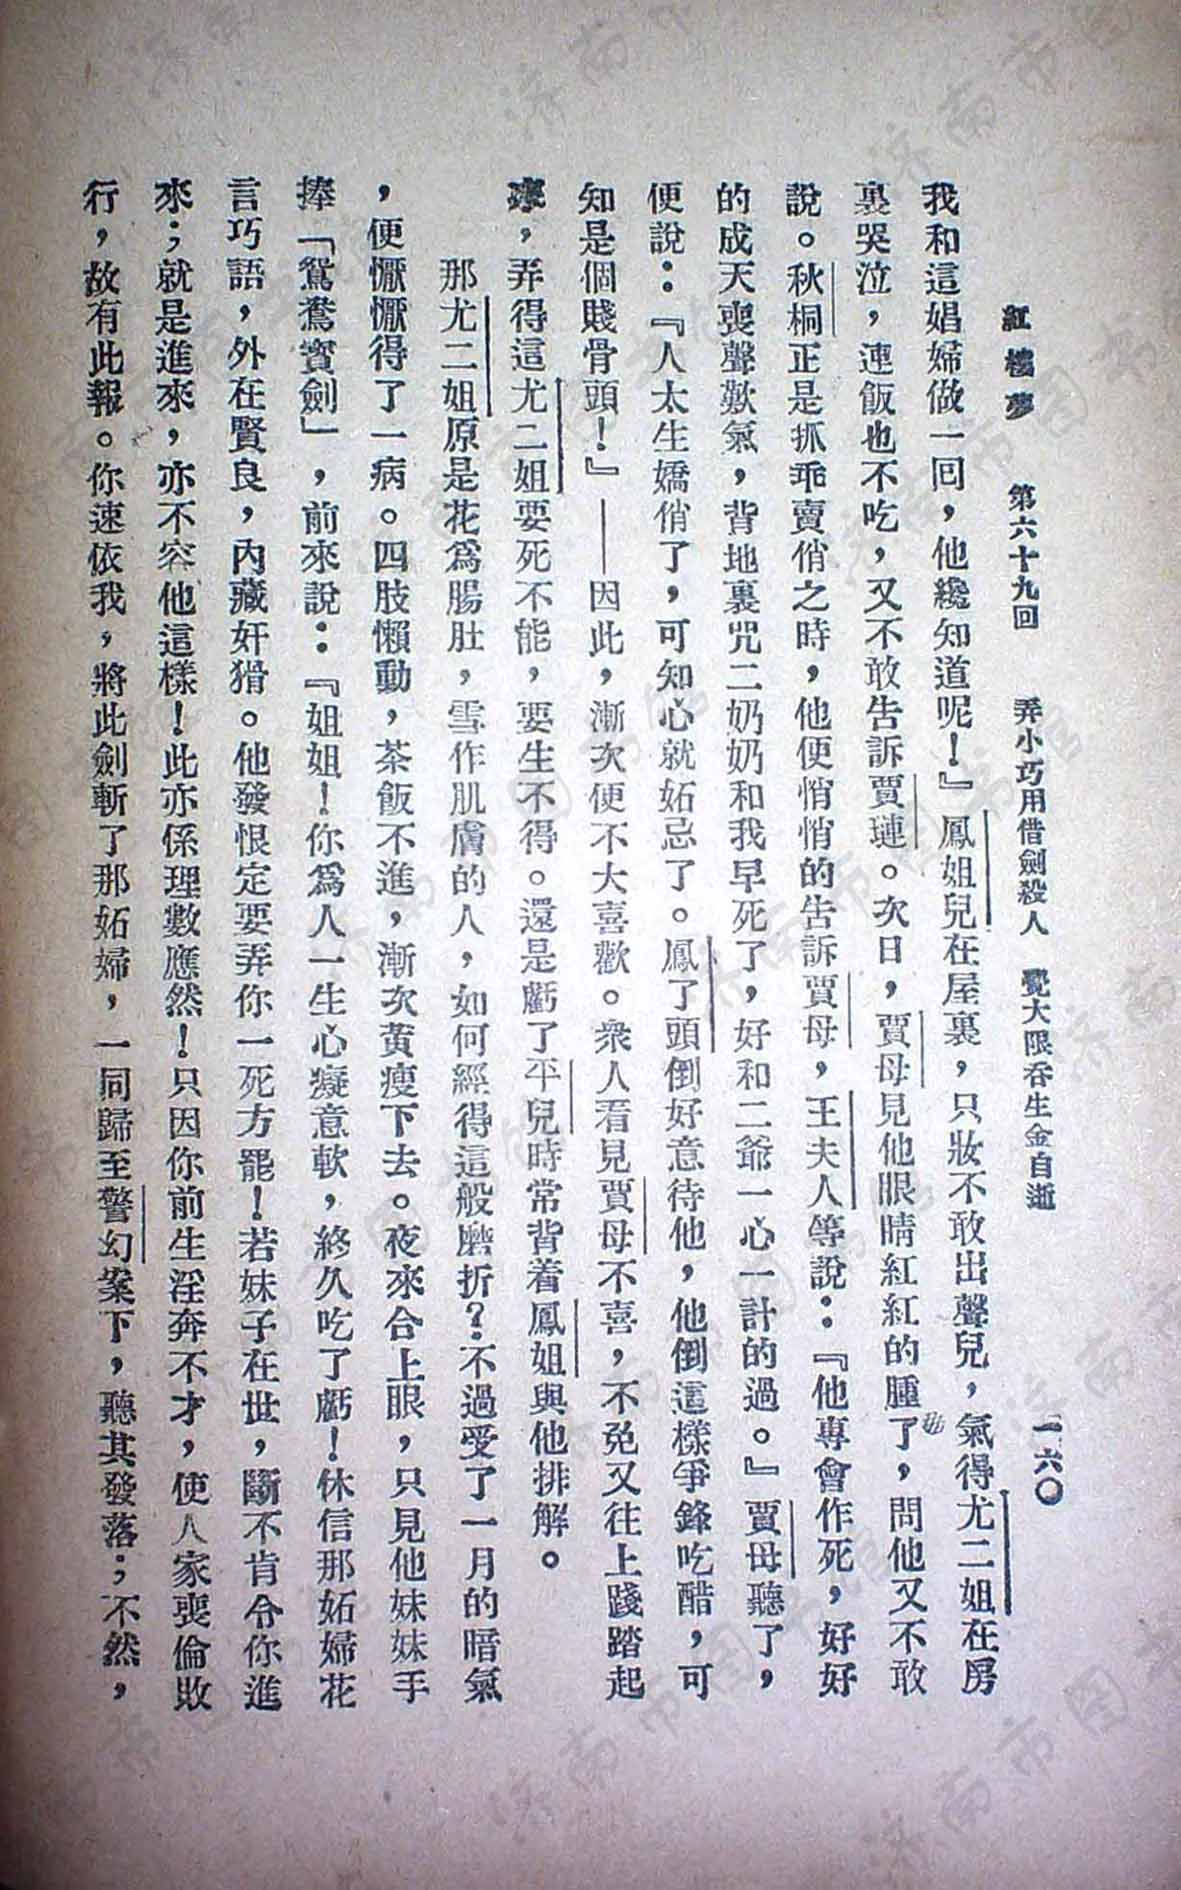 紅樓夢　第六十九回　弄小巧用借劍殺人　覺大限吞生金自逝　一六〇
我和這娼婦做一回，他纔知道呢！』鳳姐兒在屋裏，只妝不敢出聲兒，氣得尤二姐在房
裏哭泣，連飯也不吃，又不敢告訴賈璉。次日，賈母見他眼睛紅紅的腫了，問他又不敢
說。秋桐正是抓乖賣俏之時，他便悄悄的告訴賈母，王夫人等說：『他專會作死，好好
的成天喪聲歎氣，背地裏咒二奶奶和我早死了，好和二爺一心一計的過。』賈母聽了，
便說：『人太生嬌俏了，可知心就妬忌了。鳳丫頭倒好意待他，他倒這樣爭鋒吃醋，可
知是個賤骨頭！』——因此，漸次便不大喜歡。衆人看見賈母不喜，不免又往上踐踏起
來，弄得這尤二姐要死不能，要生不得。還是虧了平兒時常背着鳳姐與他排解。
那尤二姐原是花爲腸肚，雪作肌膚的人，如何經得這般磨折？不過受了一月的暗氣
，便懨懨得了一病。四肢懶動，茶飯不進，漸次黃瘦下去。夜來合上眼，只見他妹妹手
捧「鴛鴦寶劍」，前來說：『姐姐！你爲人一生心癡意軟，終久吃了虧！休信那妬婦花
言巧語，外在賢良，內藏奸猾。他發恨定要弄你一死方罷！若妹子在世，斷不肯令你進
來；就是進來，亦不容他這樣！此亦係理數應然！只因你前生淫奔不才，使人家喪倫敗
行，故有此報。你速依我，將此劍斬了那妬婦，一同歸至警幻案下，聽其發落；不然，